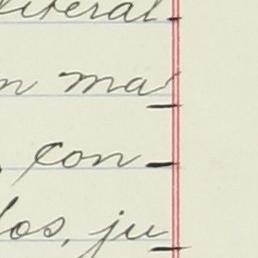 literal-
n ma-
, con-
los, ju-